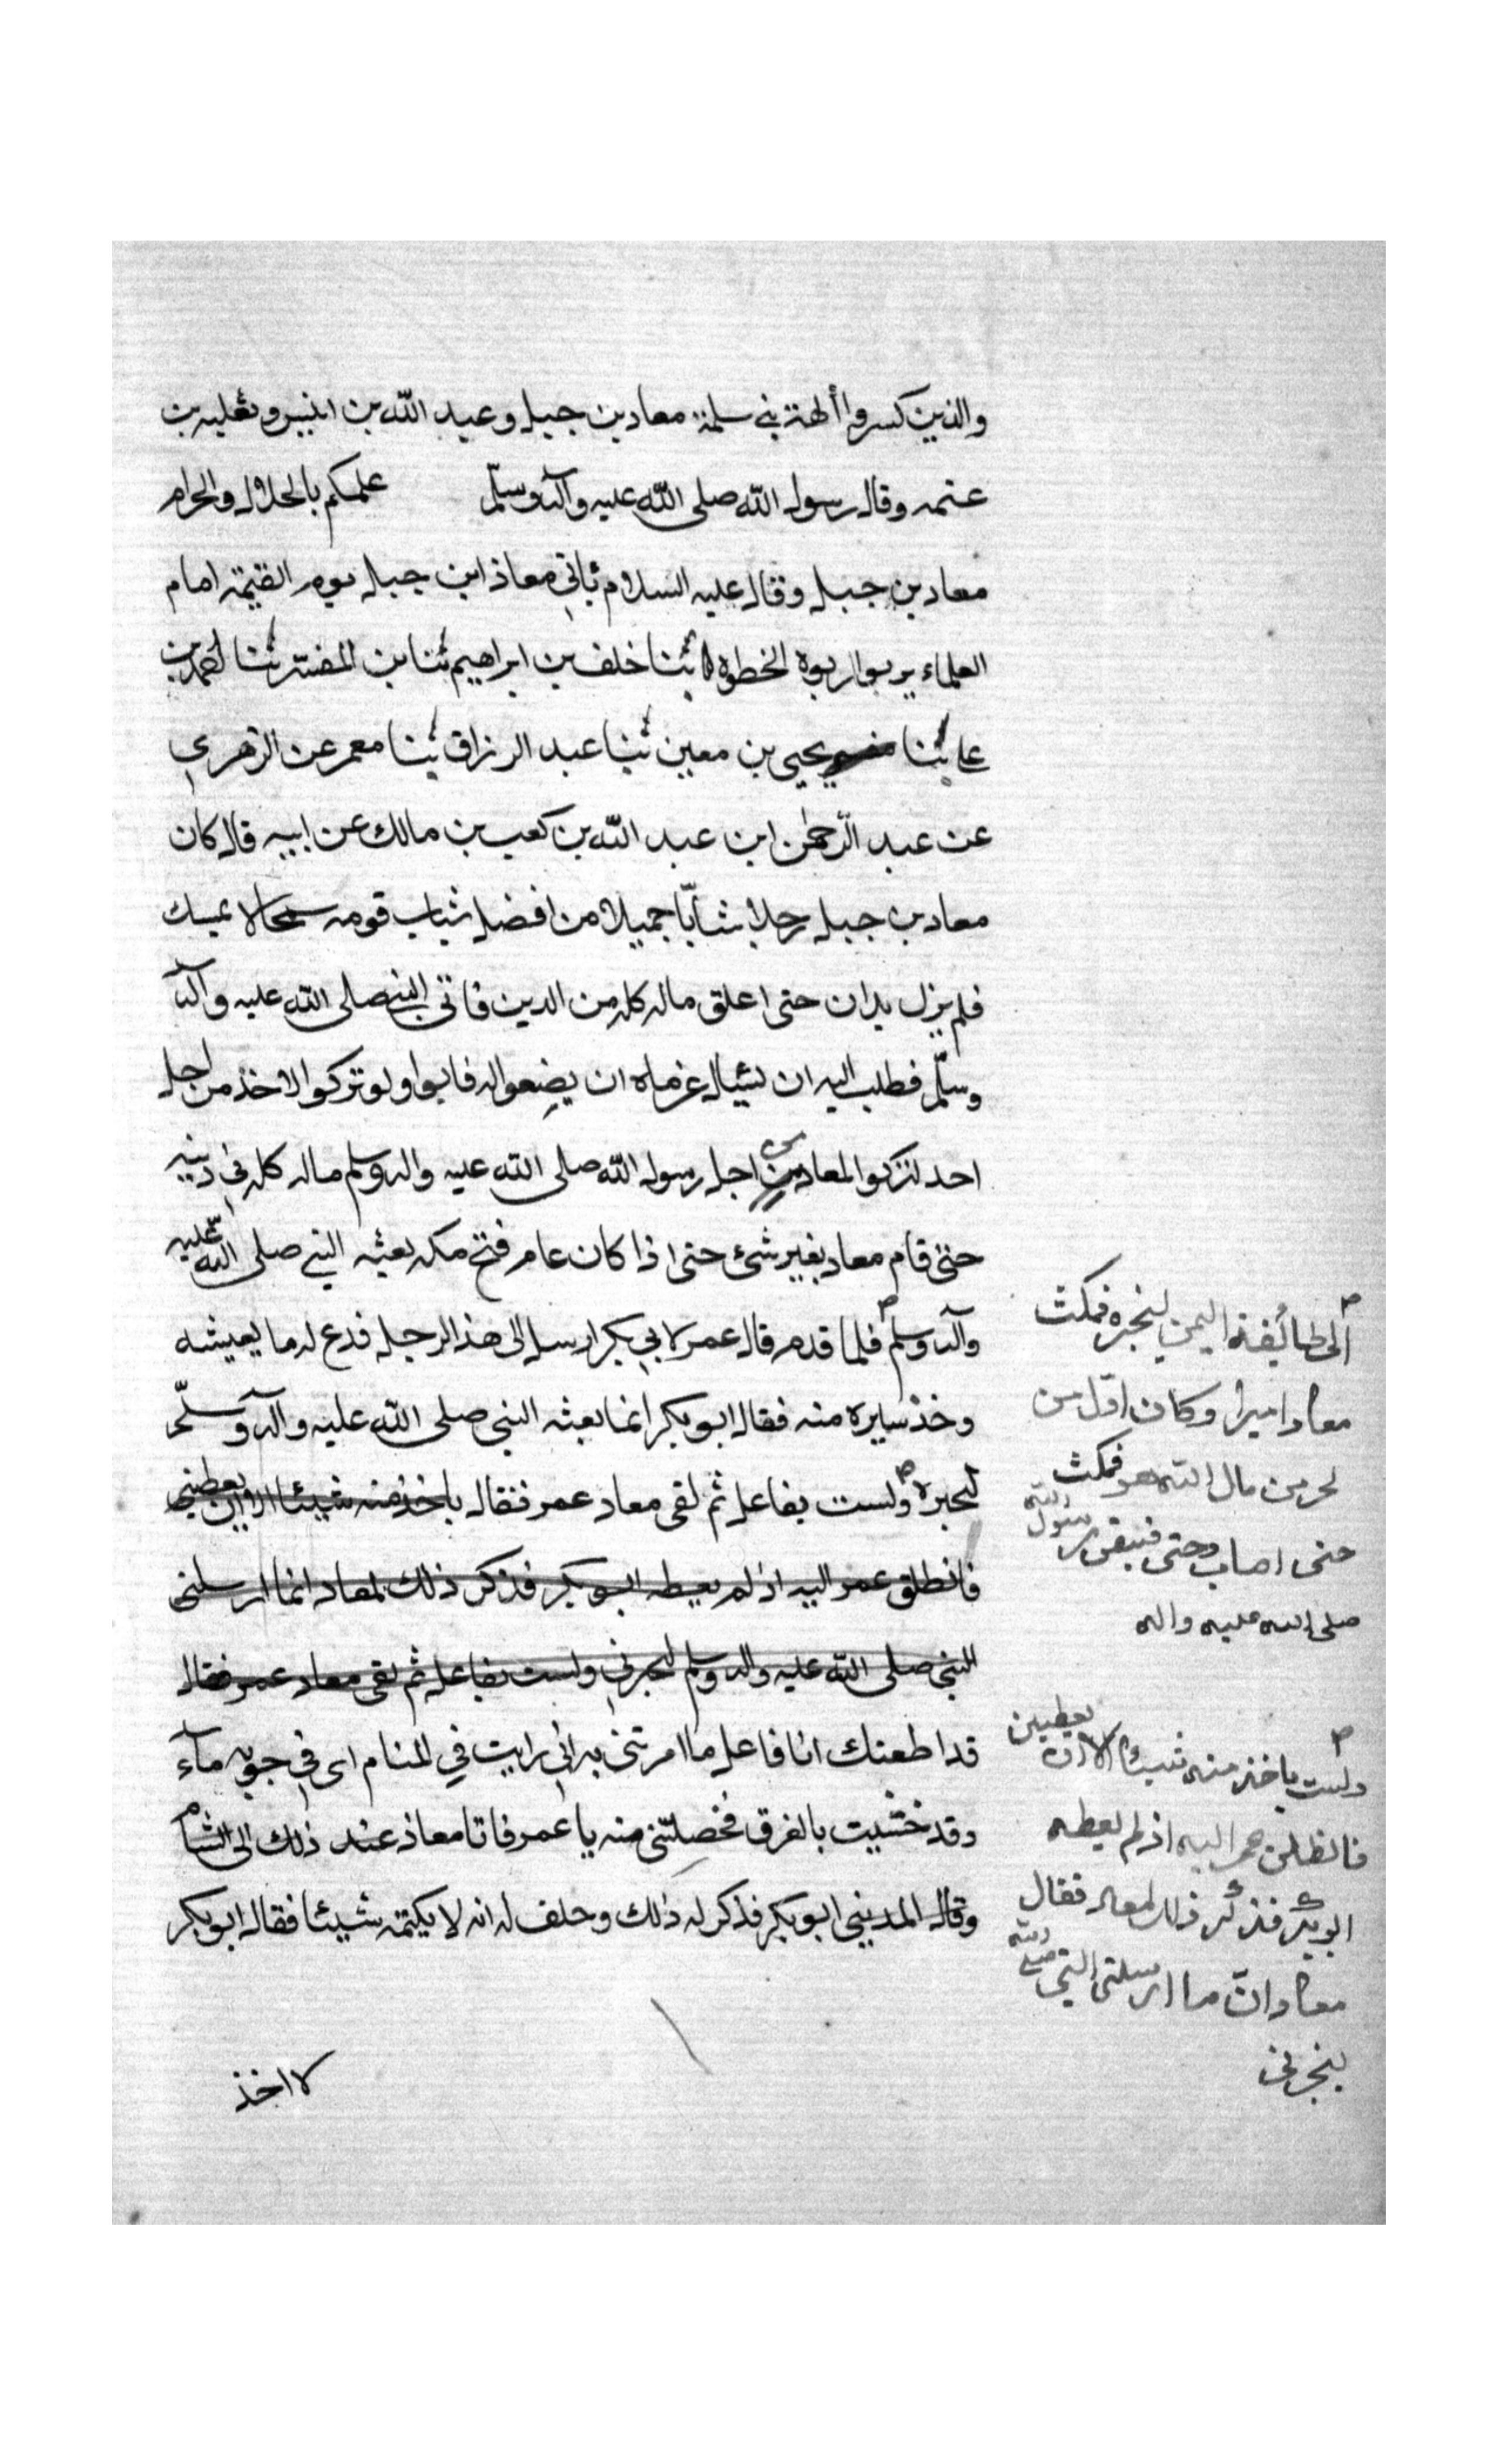 والذين كسروا ألهة بني سلمة معاد بن جبل وعبد الله بن انيس وثعلبه بن
عتمه وقال رسول الله صلى الله عليه وآله وسلّم علمكم بالحلال والحرام
معاد بن جبل وقال عليه السلام ياتي معاذ ابن جبل يوم القيمة امام
العلماء بربوا ربوة الخطوة ثنا خلف بن ابراهيم ثنا بن المفسّر ثنا احمد بن
علي ثنا يحيى بن معين ثنا عبد الرزاق ثنا معمر عن الزهري
عن عبد الرّحمٰن ابن عبد الله بن كعب بن مالك عن ابيه قال كان
معاد بن جبل رجلا شابّا جميلا من افضل شباب قومه سمحا لا يمسك
فلم يزل يدان حتى اعلق ماله كله من الدين فاتى النبي صلى الله عليه وآله
وسلّم فطلب اليه ان يسئال غرماه ان يضعوا له فابوا ولو تركوا لاخذ من اجل
احد لتركوا لمعاد من اجل رسول الله صلى الله عليه واله وسلم ماله كله في دينه
حتى قام معاد بغير شئ حتى اذا كان عام فتح مكه بعثه النبي صلى الله عليه
وآله وسلم فلما قدم قال عمر لابي بكر ارسل الى هذا الرجل فدع له ما يعيشه
وخذ سايره منه فقال ابو بكر انما بعثه النبي صلى الله عليه وآله وسلّم
لنجبره ولست بفاعل ثم لقى معاد عمر فقال ياخذ منه شيئا الا ان يعطيني
فانطلق عمر اليه اذ لم يعطه ابو بكر فذكر ذلك لمعاد انما ارسلني
النبي صلى الله عليه واله وسلم لنجبرني ولست بفاعل ثم لقى معاد عمر فقال
قد اطعتك انا فاعل ما امرتنى به انى رايت في المنام اى في جوبه مآء
وقد خشيت بالغرق فخصلتنى منه يا عمر فاتا معاذ عند ذلك الى الشام
وقال المديني ابو بكر فذكر له ذلك وحلف له انه لا يكتمه شيئا فقال ابو بكر
لا اخذ
الى طائفة اليمن لنجبره فمكث
معاد اميرا وكان اوّل من
تجر من مال الله هو فمكث
حتى اصاب وحتى فيقى رسول الله
صلى الله عليه واله
ولست باخذ منه شيئا الا ان يعطيين
فانطلق عمر اليه اذ لم يعطه
ابو بكر فذكر ذلك لمعاد فقال
معاد انّ ما ارسلنى النبي صلى الله
لنجبرنى